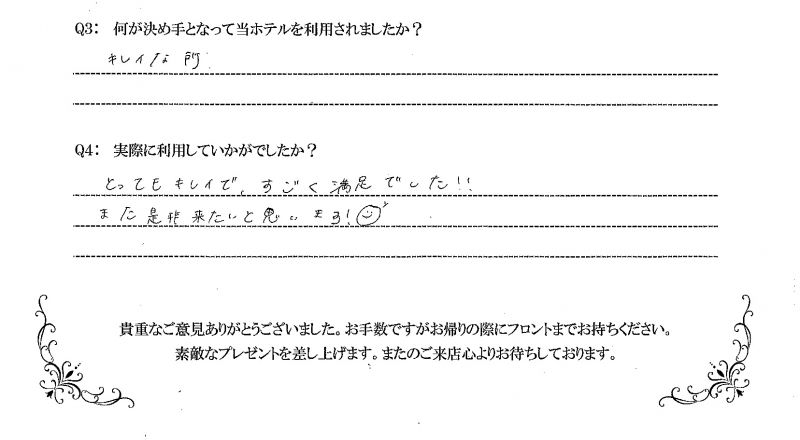 Q3: 何が決め手となって当ホテルを利用されましたか？
キレイな所
Q4: 実際に利用していかがでしたか？
とってもキレイで、すごく満足でした!!
また是非来たいと思います!
貴重なご意見ありがとうございました。お手数ですがお帰りの際にフロントまでお持ちください。
素敵なプレゼントを差し上げます。またのご来店心よりお待ちしております。